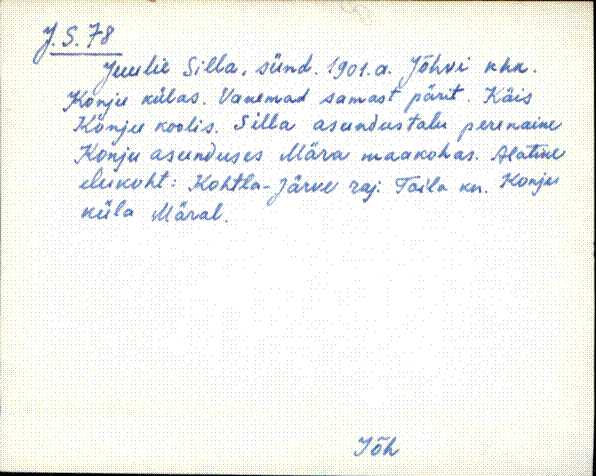 J. S. 78
Juulie Silla, sünd. 1901. a. Jõhvi khk.
Konju külas. Vanemad samast pärit. Käis
Konju koolis. Silla asundustalu perenaine
Konju asunduses Mära maakohas. Alatine
elukoht: Kohtla-Järve raj. Toila kn. Konju
küla Märal.
Jõh